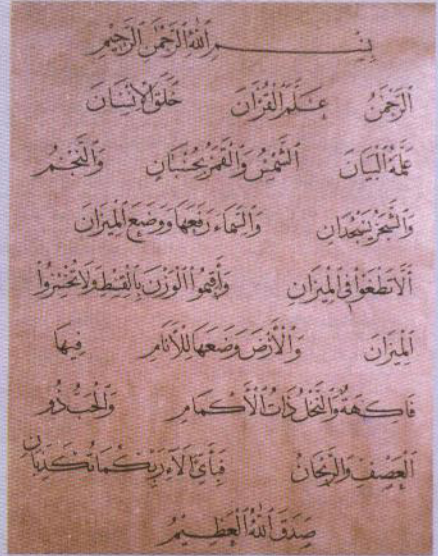 بِسْمِ اللَّهِ الرَّحْمَٰنِ الرَّحِيمِ
الرَّحْمَٰنُ عَلَّمَ الْقُرْآنَ خَلَقَ الْإِنْسَانَ
عَلَّمَهُ الْبَيَانَ الشَّمْسُ وَالْقَمَرُ بِحُسْبَانٍ وَالنَّجْمُ
وَالشَّجَرُ يَسْجُدَانِ وَالسَّمَاءَ رَفَعَهَا وَوَضَعَ الْمِيزَانَ
أَلَّا تَطْغَوْا فِي الْمِيزَانِ وَأَقِيمُوا الْوَزْنَ بِالْقِسْطِ وَلَا تُخْسِرُوا
الْمِيزَانَ وَالْأَرْضَ وَضَعَهَا لِلْأَنَامِ فِيهَا
فَاكِهَةٌ وَالنَّخْلُ ذَاتُ الْأَكْمَامِ وَالْحَبُّ ذُو
الْعَصْفِ وَالرَّيْحَانُ فَبِأَيِّ آلَاءِ رَبِّكُمَا تُكَذِّبَانِ
صَدَقَ اللَّهُ الْعَظِيمُ